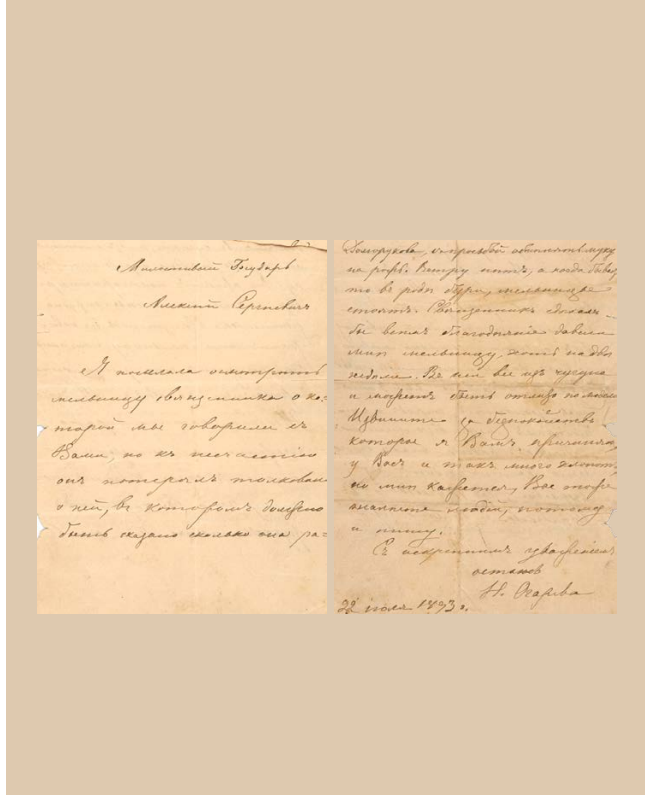 Милостивый Государь
Алексий Сергеевичъ
Я посылала осмотрѣть
мельницу священника о ко-
торой мы говорили съ
Вами; но къ несчастію
онъ потерялъ
о ней, въ которомъ должно
быть сказано сколько она
на рожь. Вѣтру нѣтъ, а когда бывае
то въ родѣ бури, мельница не
стоитъ. Священникъ
бы всѣмъ благодѣяніе
мнѣ мельницу, хоть на двѣ
недѣли. Въ ней все изъ чугуна
и можетъ быть
Извините за безпокойство
которое я Вамъ причиняю,
у Васъ и такъ много хлопотъ,
но мнѣ кажется, Вы тоже
людей, потому
и пишу.
Съ искреннимъ уваженіемъ
остаюсь
Н. Огарева
22 іюля 1893 г.